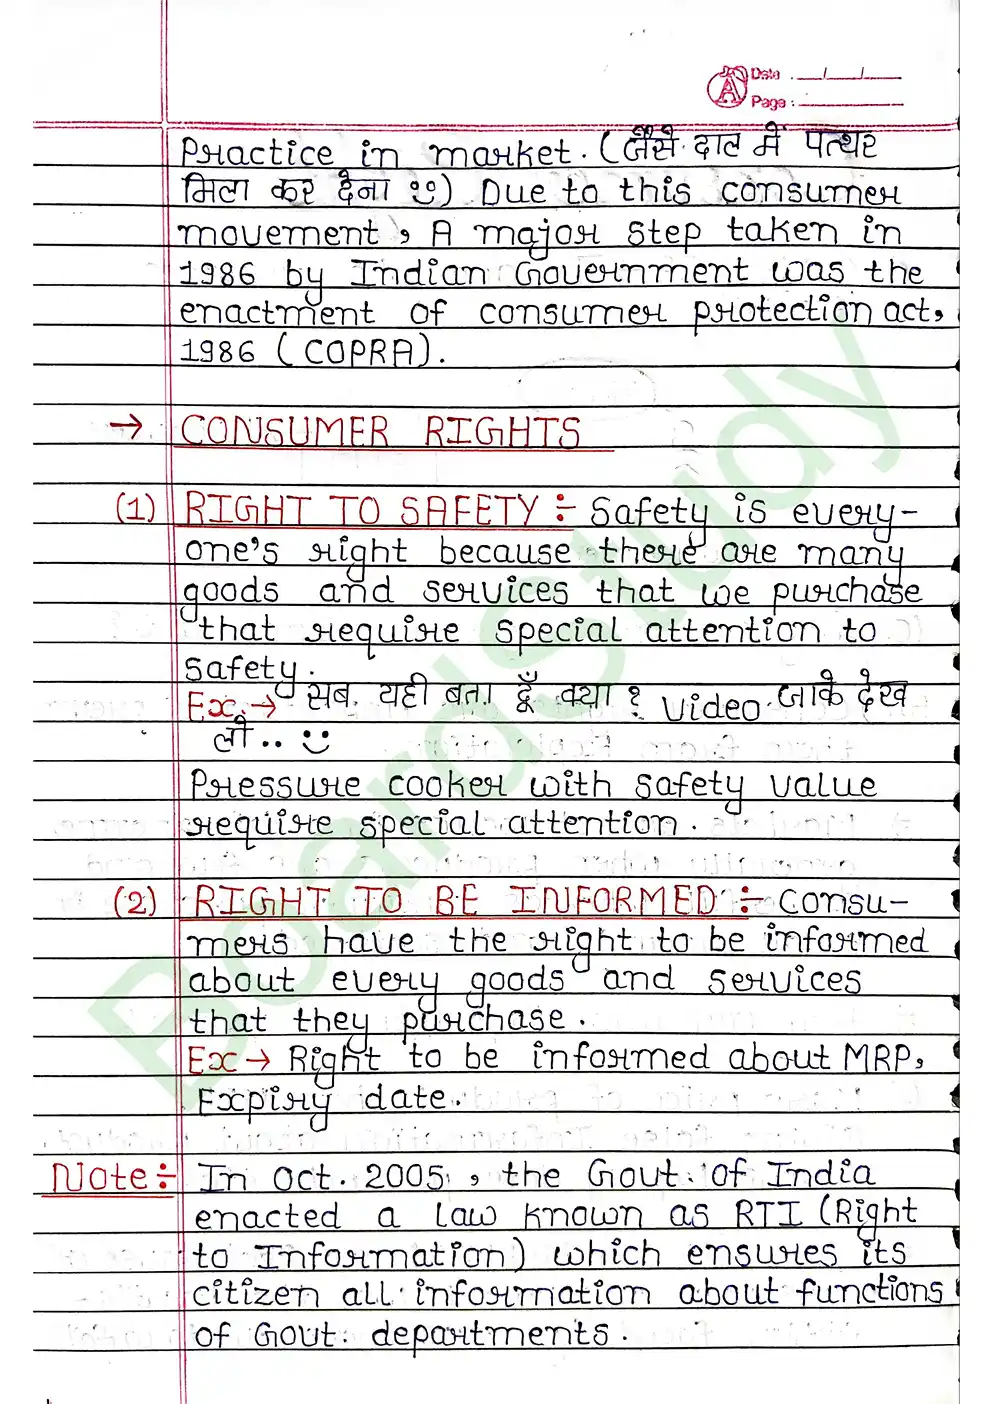 Date : __/__/__
Page :
Practice in market. (जैसे दाल में पत्थर
मिला कर देना) Due to this consumer
movement, A major step taken in
1986 by Indian Government was the
enactment of consumer protection act,
1986 (COPRA).
→ CONSUMER RIGHTS
(1) RIGHT TO SAFETY ÷ Safety is every-
one's right because there are many
goods and services that we purchase
that require special attention to
safety.
Ex. → सब यही बता दूँ क्या ? Video जाके देख
लो.. :)
Pressure cooker with safety value
require special attention.
(2) RIGHT TO BE INFORMED ÷ Consu-
mers have the right to be informed
about every goods and services
that they purchase.
Ex → Right to be informed about MRP,
Expiry date.
Note ÷ In Oct. 2005, the Govt. of India
enacted a law known as RTI (Right
to Information) which ensures its
citizen all information about functions
of Govt. departments.
BoardStudy